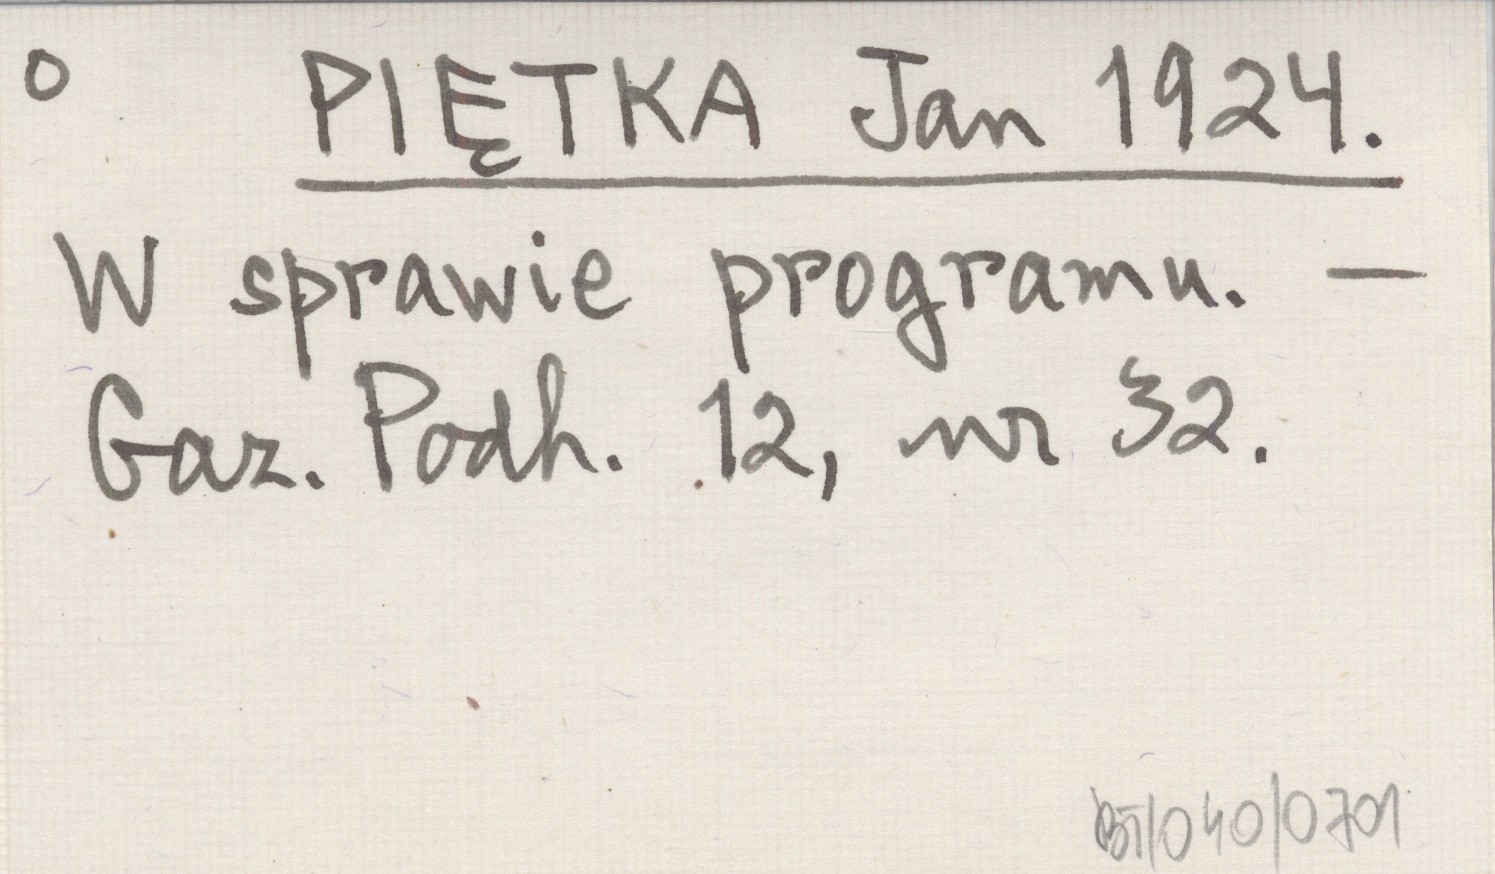 o PIĘTKA Jan 1924.
W sprawie programu. —
Gaz. Podh. 12, nr 32.
BT/040/0701